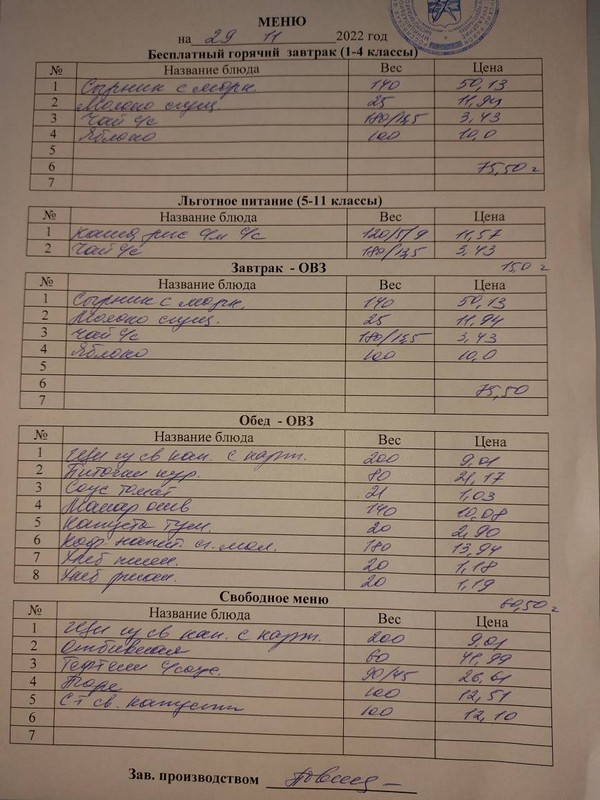 МЕНЮ
на 29 11 2022 год
Бесплатный горячий завтрак (1-4 классы)
№ Название блюда Вес Цена
1 Сырник с морк. 140 50,13
2 Молоко сгущ 25 11,94
3 Чай с/с 180/13,5 3,43
4 Яблоко 100 10,0
5
6 75,50
7
Льготное питание (5-11 классы)
№ Название блюда Вес Цена
1 Каша рис с/м с/с 120/5/9 11,57
2 Чай с/с 180/13,5 3,43
Завтрак - ОВЗ 15,0
№ Название блюда Вес Цена
1 Сырник с морк. 140 50,13
2 Молоко сгущ. 25 11,94
3 Чай с/с 180/13,5 3,43
4 Яблоко 100 10,0
5
6 75,50
7
Обед - ОВЗ
№ Название блюда Вес Цена
1 Щи из св кап. с карт. 200 9,01
2 Биточки кур. 80 21,17
3 Соус томат 21 1,03
4 Макар отв 140 10,08
5 Капуста туш. 20 2,90
6 Коф напит. сг. мол. 180 13,94
7 Хлеб пшен. 20 1,18
8 Хлеб ржан. 20 1,19
Свободное меню 60,50
№ Название блюда Вес Цена
1 Щи из св кап. с карт. 200 9,01
2 Отбивная 60 41,99
3 Тефтели с/соус. 90/45 26,61
4 Пюре 100 12,51
5 Ст св. капусты 100 12,10
6
7
Зав. производством